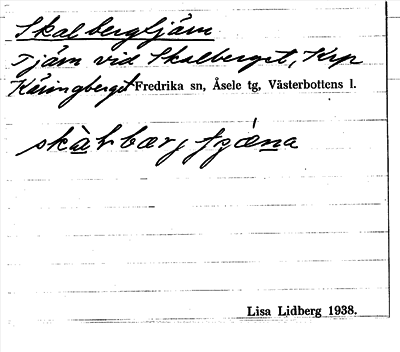 Skalbergtjärn
Tjärn vid Skalberget, Krp
Käringberget Fredrika sn, Åsele tg, Västerbottens l.
Lisa Lidberg 1938.